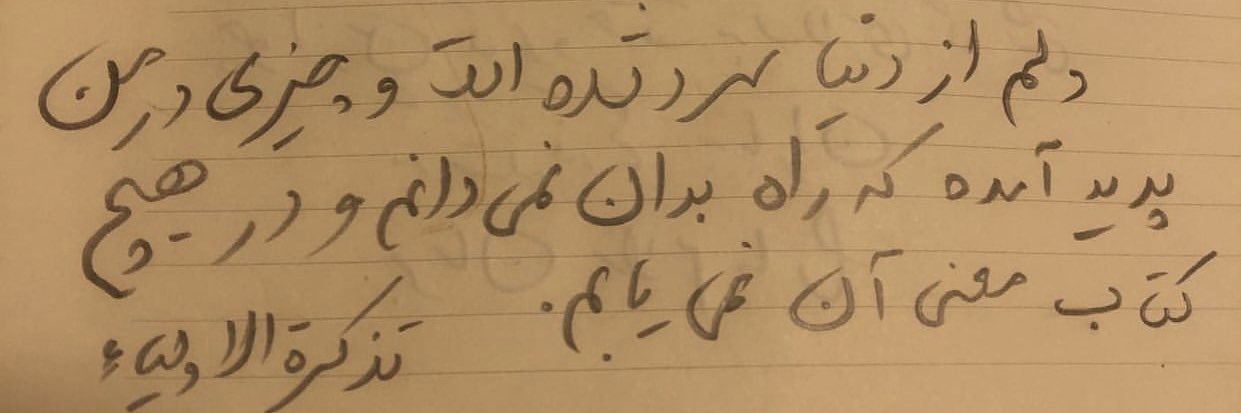 دلم از دنیا سرد شده است و چیزی در من
پدید آمده که راه بدان نمی دانم و در هیچ
کتاب معنی آن نمی یابم.
تذکرة الاولیاء